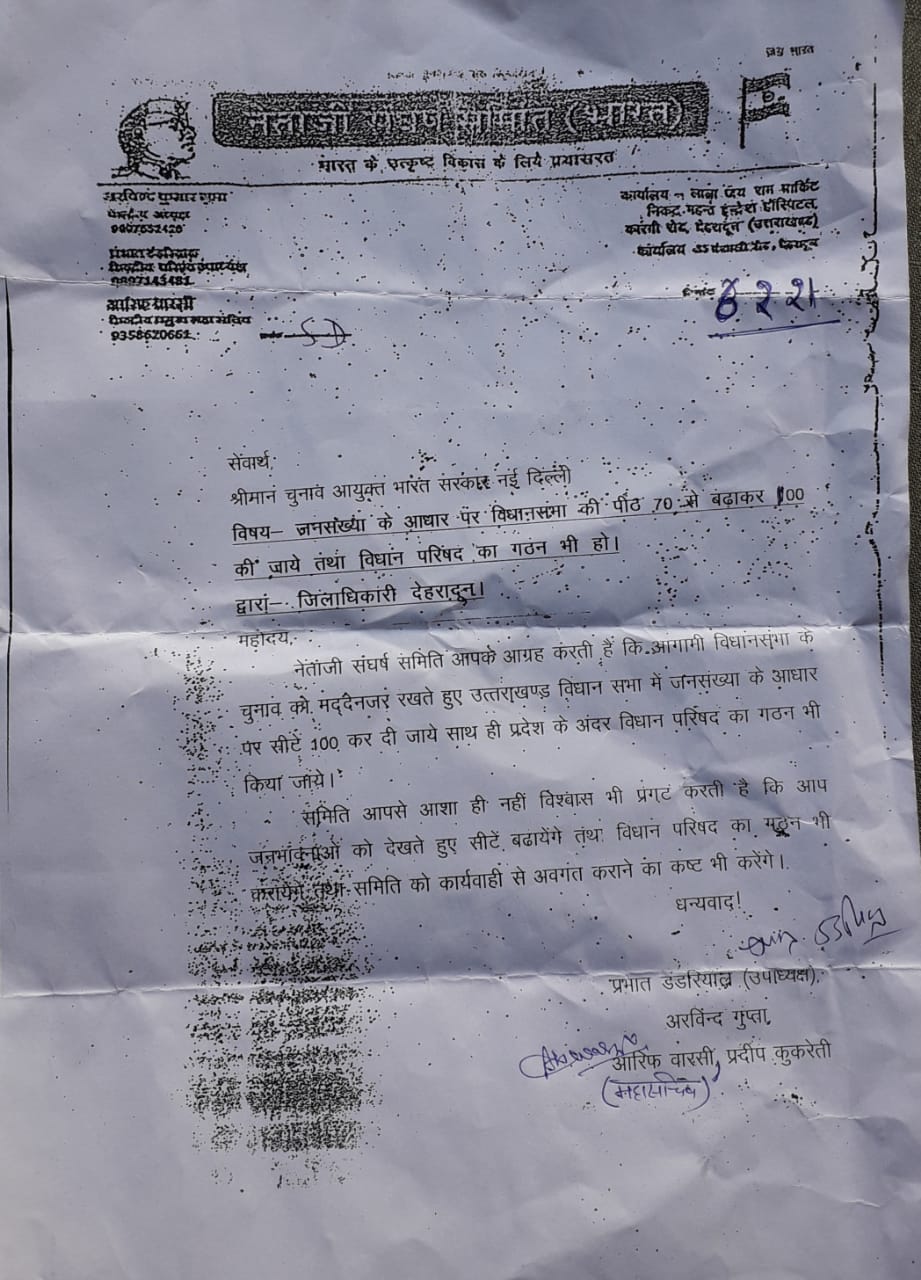 जय भारत
नेताजी संघर्ष समिति (भारत)
भारत के उत्कृष्ट विकास के लिये प्रयासरत
अरविन्द कुमार गुप्ता
केन्द्रीय अध्यक्ष
प्रभात डंडरियाल
आरिफ वारसी
9358620661
कार्यालय - लाला जय राम मार्किट
निकट महन्त इन्द्रेश हॉस्पिटल,
कारगी रोड, देहरादून (उत्तराखण्ड)
कार्यालय
दिनांक 6 2 21
सेंवार्थ,
श्रीमान चुनाव आयुक्त भारत सरकार नई दिल्ली
विषय– जनसंख्या के आधार पर विधानसभा की पीठ 70 से बढ़ाकर 100
की जाये तथा विधान परिषद का गठन भी हो।
द्वारा– जिलाधिकारी देहरादून।
महोदय,
नेताजी संघर्ष समिति आपके आग्रह करती हैं कि आगामी विधानसभा के
चुनाव को मद्देनजर रखते हुए उत्तराखण्ड विधान सभा में जनसंख्या के आधार
पर सीटें 100 कर दी जाये साथ ही प्रदेश के अंदर विधान परिषद का गठन भी
किया जाये।
समिति आपसे आशा ही नहीं विश्वास भी प्रगट करती है कि आप
जनभावनाओं को देखते हुए सीटें बढायेंगे तथा विधान परिषद का गठन भी
करायेंगे तथा समिति को कार्यवाही से अवगत कराने का कष्ट भी करेंगे।
धन्यवाद!
प्रभात डंडरियाल (उपाध्यक्ष),
अरविन्द गुप्ता,
आरिफ वारसी, प्रदीप कुकरेती
(महासचिव)